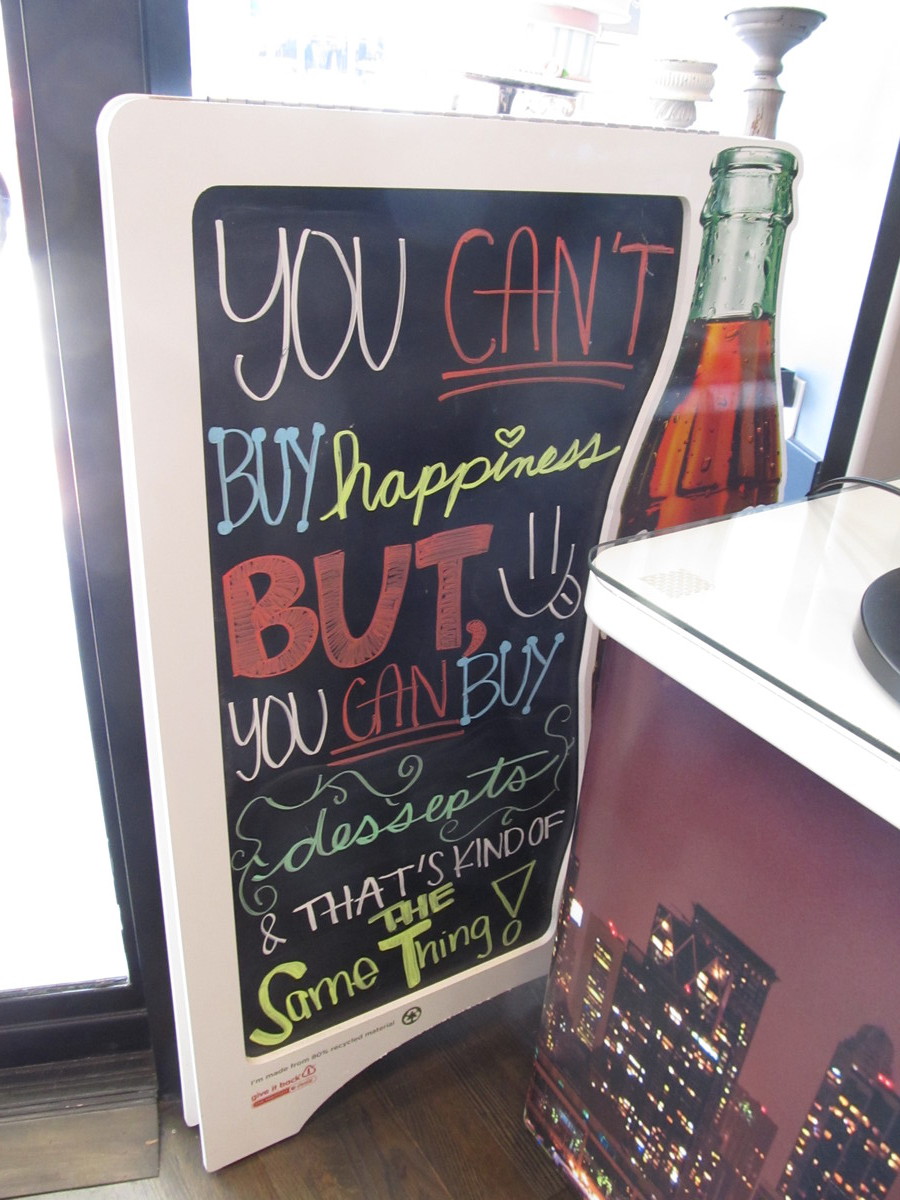 YOU CAN'T
BUY happiness
BUT,
YOU CAN BUY
desserts
& THAT'S KIND OF
THE
Same Thing!
I'm made from 80% recycled material
give it back